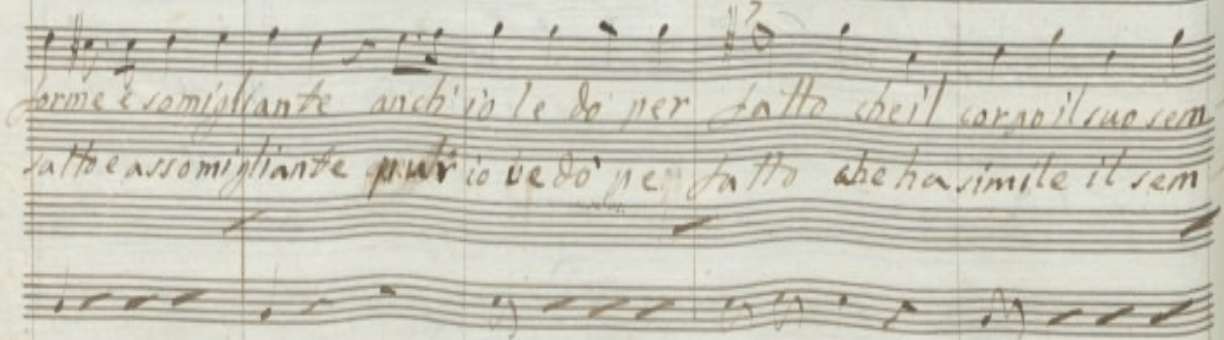 forme è somigliante anch' io le do per fatto che il corpo il suo sem
fatto e assomigliante pur io ve dò per fatto che ha simile il sem